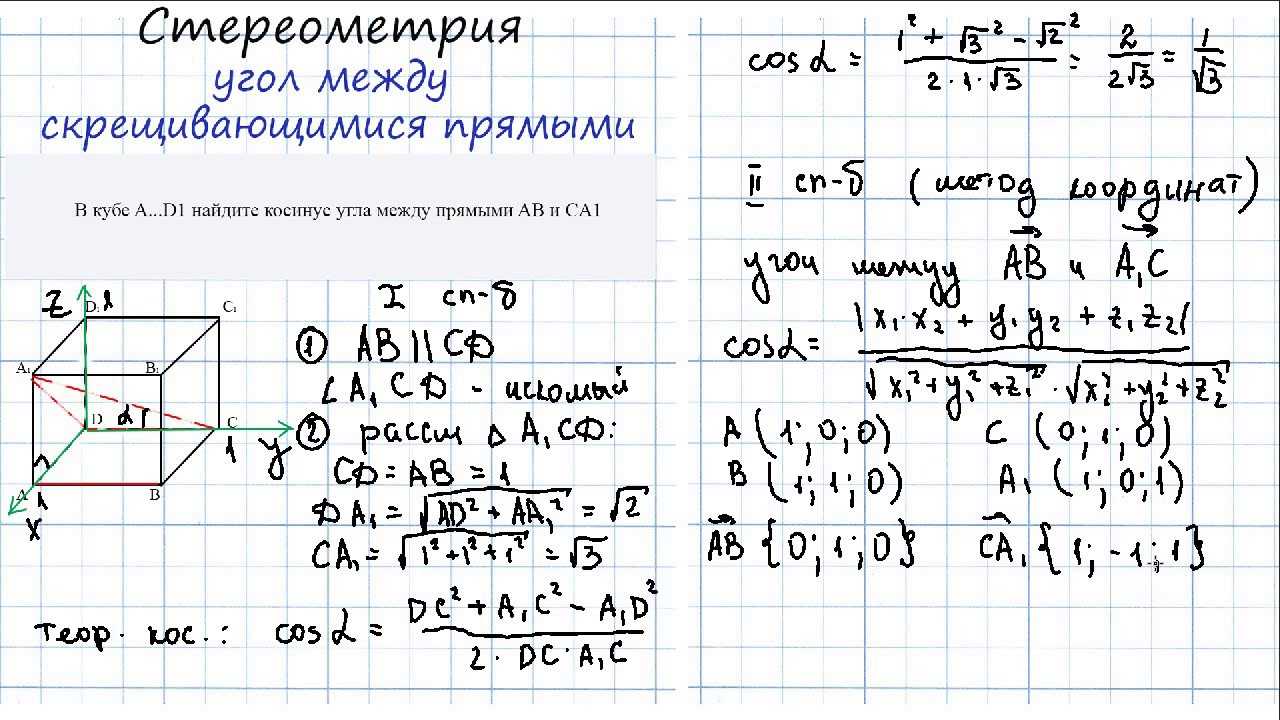 Стереометрия
угол между
скрещивающимися прямыми
В кубе A...D1 найдите косинус угла между прямыми AB и CA1
Z 1 D₁ C₁
A₁ B₁
D α C
1 y
A 1 B
x
I сп-б
① AB || CD
∠ A₁CD - искомый
② рассм △ A₁CD:
CD = AB = 1
DA₁ = √(AD² + AA₁²) = √2
CA₁ = √(1² + 1² + 1²) = √3
теор. кос.: cos α = (DC² + A₁C² - A₁D²) / (2 · DC · A₁C)
cos α = (1² + √3² - √2²) / (2 · 1 · √3) = 2 / (2√3) = 1 / √3
II сп-б (метод координат)
угол между AB и A₁C
cos α = |x₁·x₂ + y₁y₂ + z₁z₂| / (√(x₁² + y₁² + z₁²) · √(x₂² + y₂² + z₂²))
A (1; 0; 0) C (0; 1; 0)
B (1; 1; 0) A₁ (1; 0; 1)
AB {0; 1; 0} CA₁ {1; -1; 1}